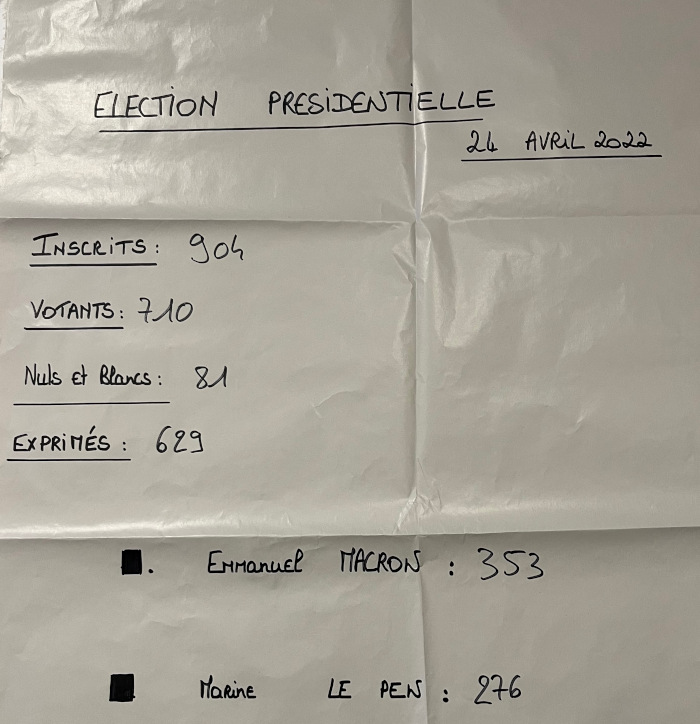 ELECTION PRESIDENTIELLE
24 AVRIL 2022
INSCRITS : 904
VOTANTS : 710
Nuls et Blancs : 81
EXPRIMÉS : 629
. Emmanuel MACRON : 353
Marine LE PEN : 276